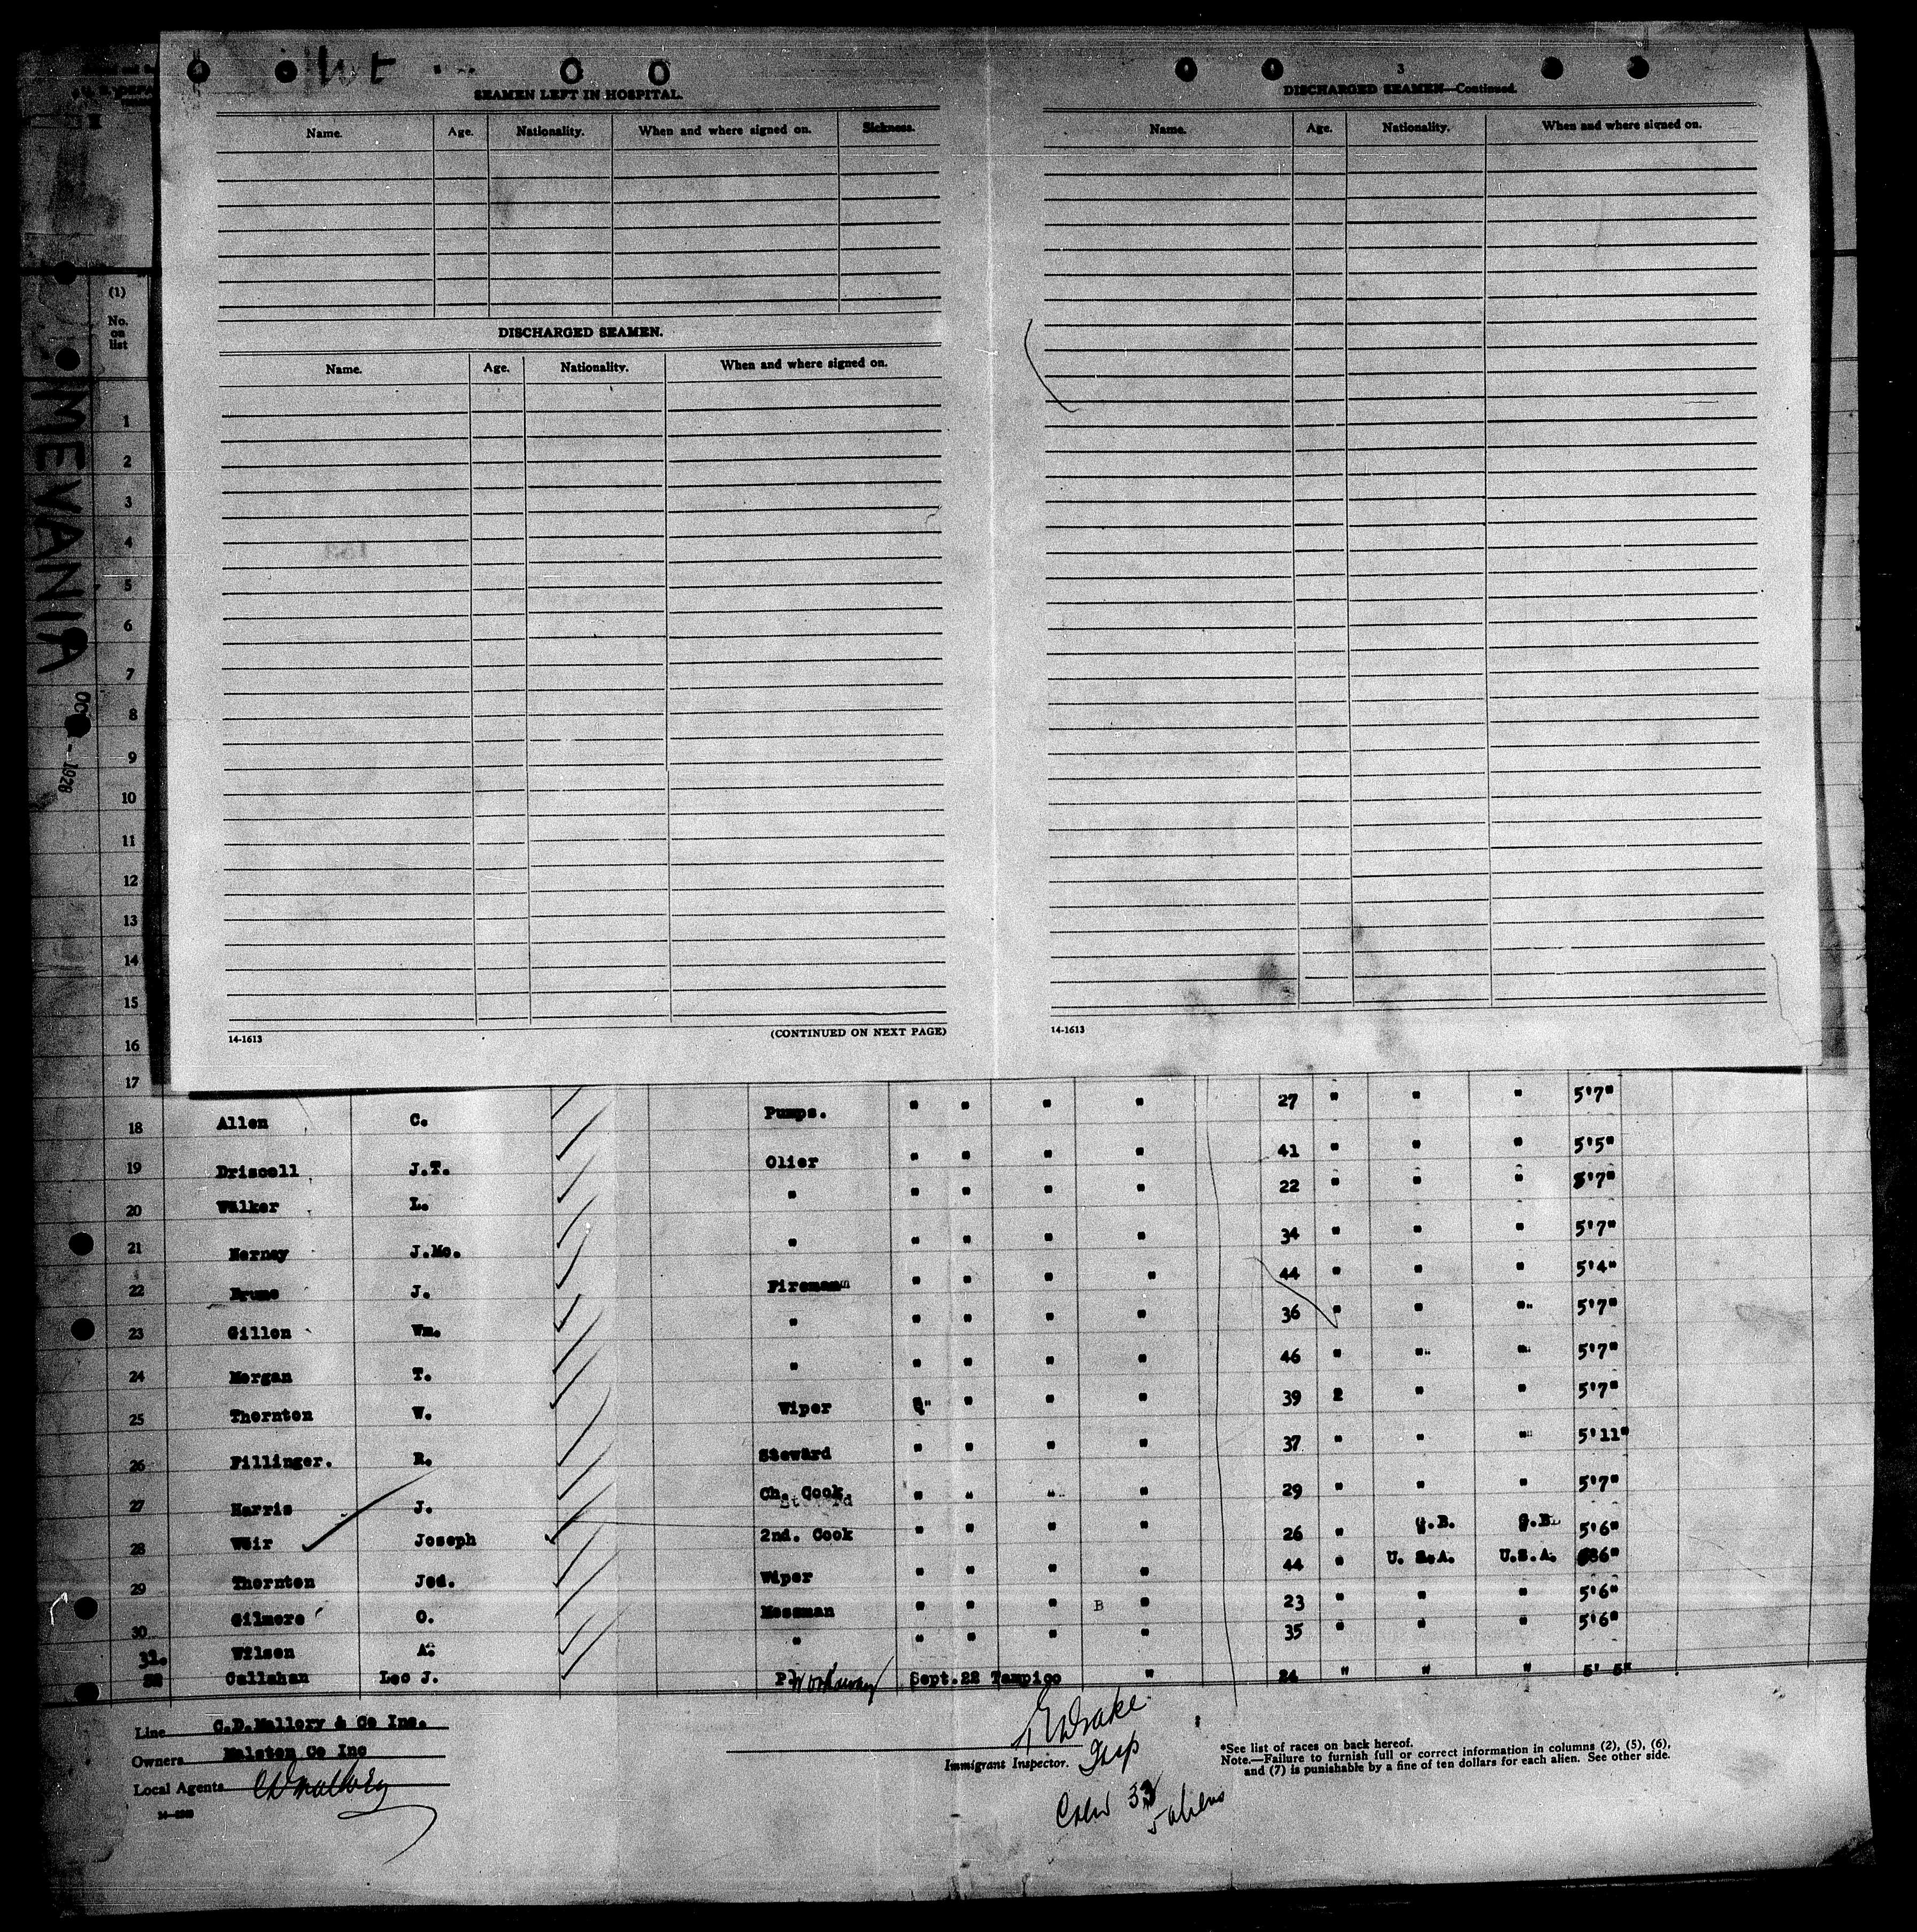 Wt
SEAMEN LEFT IN HOSPITAL.
Name. Age. Nationality. When and where signed on. Sickness.
DISCHARGED SEAMEN.
Name. Age. Nationality. When and where signed on.
(CONTINUED ON NEXT PAGE)
14-1613
3
DISCHARGED SEAMEN—Continued.
Name. Age. Nationality. When and where signed on.
14-1613
MEVANIA
1926
(1)
No.
on
list
1
2
3
4
5
6
7
8
9
10
11
12
13
14
15
16
17
18 Allen C. Pumps. " " " " 27 " " " 5'7"
19 Driscoll J.T. Olier " " " " 41 " " " 5'5"
20 Walker L. " " " " " 22 " " " 5'7"
21 Nernay J.Mc. " " " " " 34 " " " 5'7"
22 J. Fireman " " " " 44 " " " 5'4"
23 Gillen Wm. " " " " " 36 " " " 5'7"
24 Morgan T. " " " " " 46 " " " 5'7"
25 Thornton W. Wiper " " " " 39 2 " " 5'7"
26 Fillinger. R. Steward " " " " 37 " " " 5'11"
27 Harris J. Ch. Cook " " " " 29 " " " 5'7"
28 Weir Joseph 2nd. Cook " " " " 26 " G.B. G.B. 5'6"
29 Thornton Jed. Wiper " " " " 44 " U. S.A. U.S.A. 5'6"
30 Gilmore O. Messman " " " B " 23 " " " 5'6"
31. Wilson A. " " " " " 35 " " " 5'6"
32 Callahan Leo J. Workaway Sept.22 Tampico " 24 " " " 5' 5"
Line C.D.Mallory & Co Inc.
Owners Malston Co Inc
Local Agents CD Mallory
Drake
Immigrant Inspector. Insp
Crew 33
5 aliens
*See list of races on back hereof.
Note.—Failure to furnish full or correct information in columns (2), (5), (6),
and (7) is punishable by a fine of ten dollars for each alien. See other side.